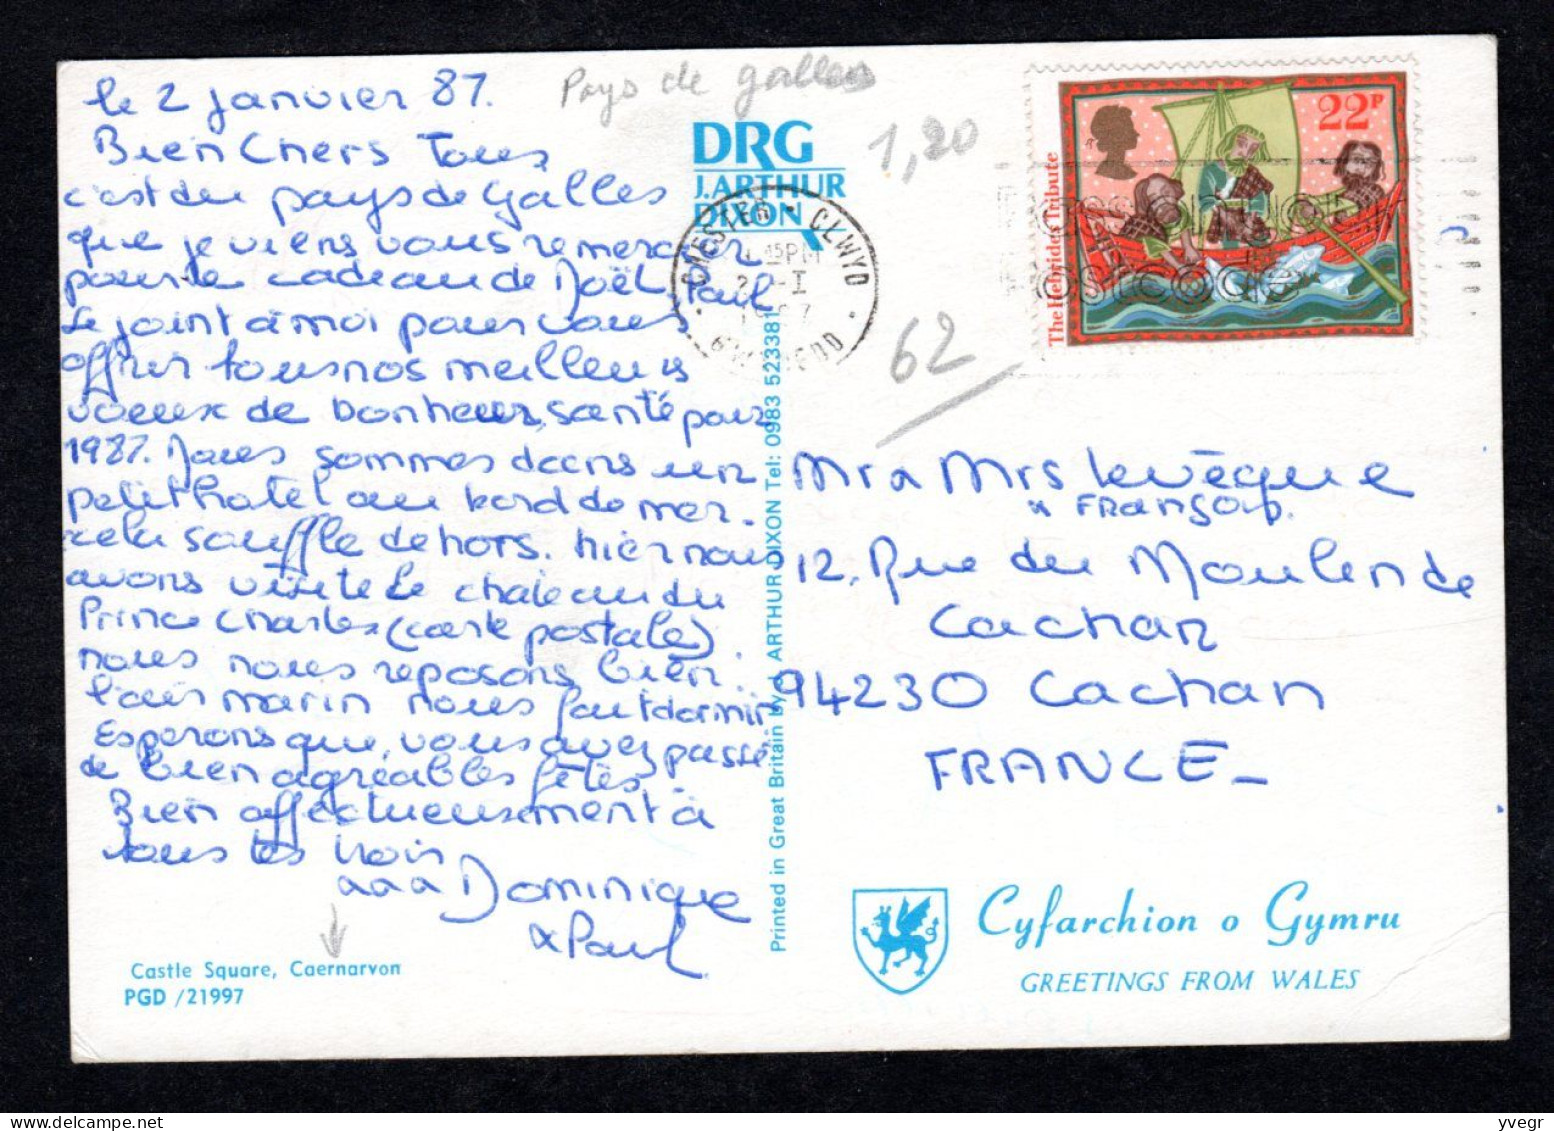 le 2 janvier 87.
Bien Chers Tous
c'est du pays de Galles
que je viens vous remercier
pour le cadeau de Noël. Paul
se joint à moi pour vous
offrir tous nos meilleurs
voeux de bonheur, santé pour
1987. Nous sommes dans un
petit hotel au bord de mer.
cela souffle dehors. hier nous
avons visité le chateau du
Prince Charles (carte postale).
nous nous reposons bien.
l'air marin nous fait dormir
Esperons que vous avez passé
de bien agréables fêtes
Bien affectueusement à
tous les trois
Dominique
& Paul
Castle Square, Caernarvon
PGD /21997
Pays de galles
1,20
62
DRG
J.ARTHUR
DIXON
Printed in Great Britain by J. ARTHUR DIXON Tel: 0983 523381
CHESTER - CLWYD
15PM
2 -I
The Hebrides Tribute
22P
Mr & Mrs Levèque
& François.
12, Rue du Moulin de
Cachan
94230 Cachan
FRANCE_
Cyfarchion o Gymru
GREETINGS FROM WALES
yvegr